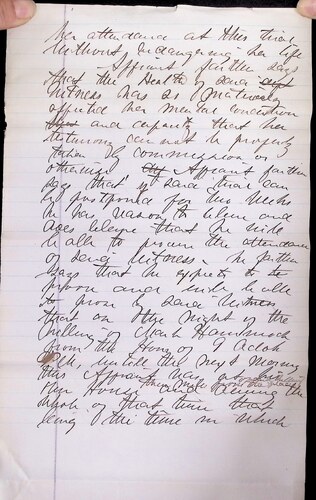 her attendance at this trial
without endangering her life
Affiant further says
that the Health of said
witness has so materially
affected her mental condition
and capacity that her
testimony can not be properly
taken by commission or
otherwise Affiant further
says that if said trial can
be postponed for two weeks
he has reason to believe and
does believe that he will
be able to procure the attendance
of said witness. he further
says that he expects to
prove and will be able
to prove by said witness
that on the night of the
killing of Mark Hammock
from the Hour of 9 Oclok
P.M., until the next morning
this Affiant was at
their House and during the
whole of that time that
being the time in which